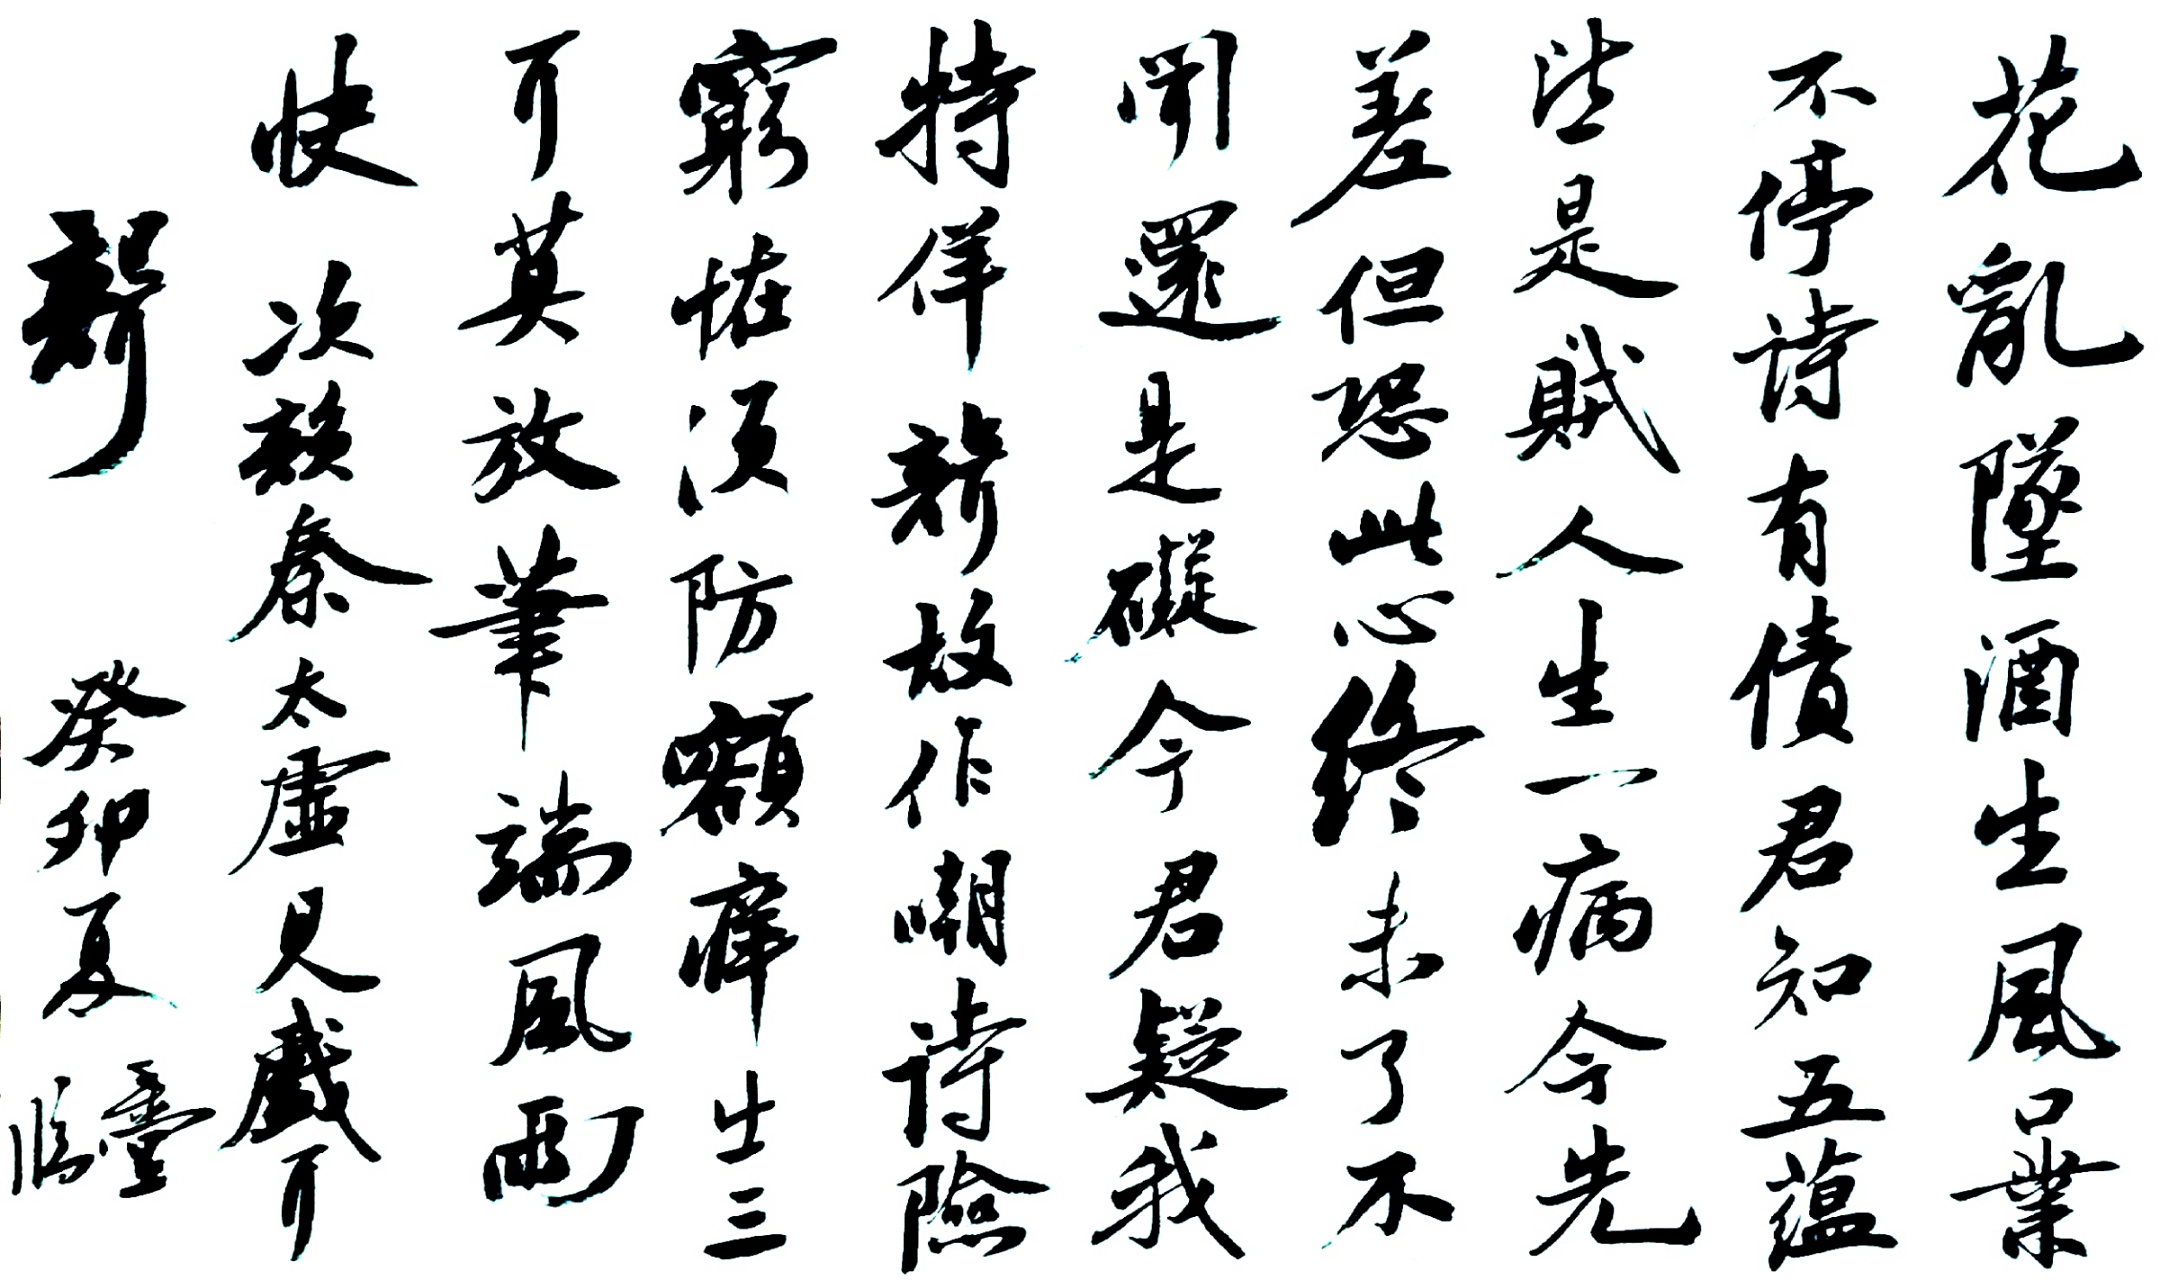 花亂墜酒生風口業
不停詩有債君知五蘊
皆是賊人生一病今先
差但恐此心終未了不
聞還是礙今君疑我
特佯聾故作嘲詩險
窮怪須防額痒出三
耳莫放筆端風雨
快 次韻秦太虛見戲耳
聾 癸卯夏 臨